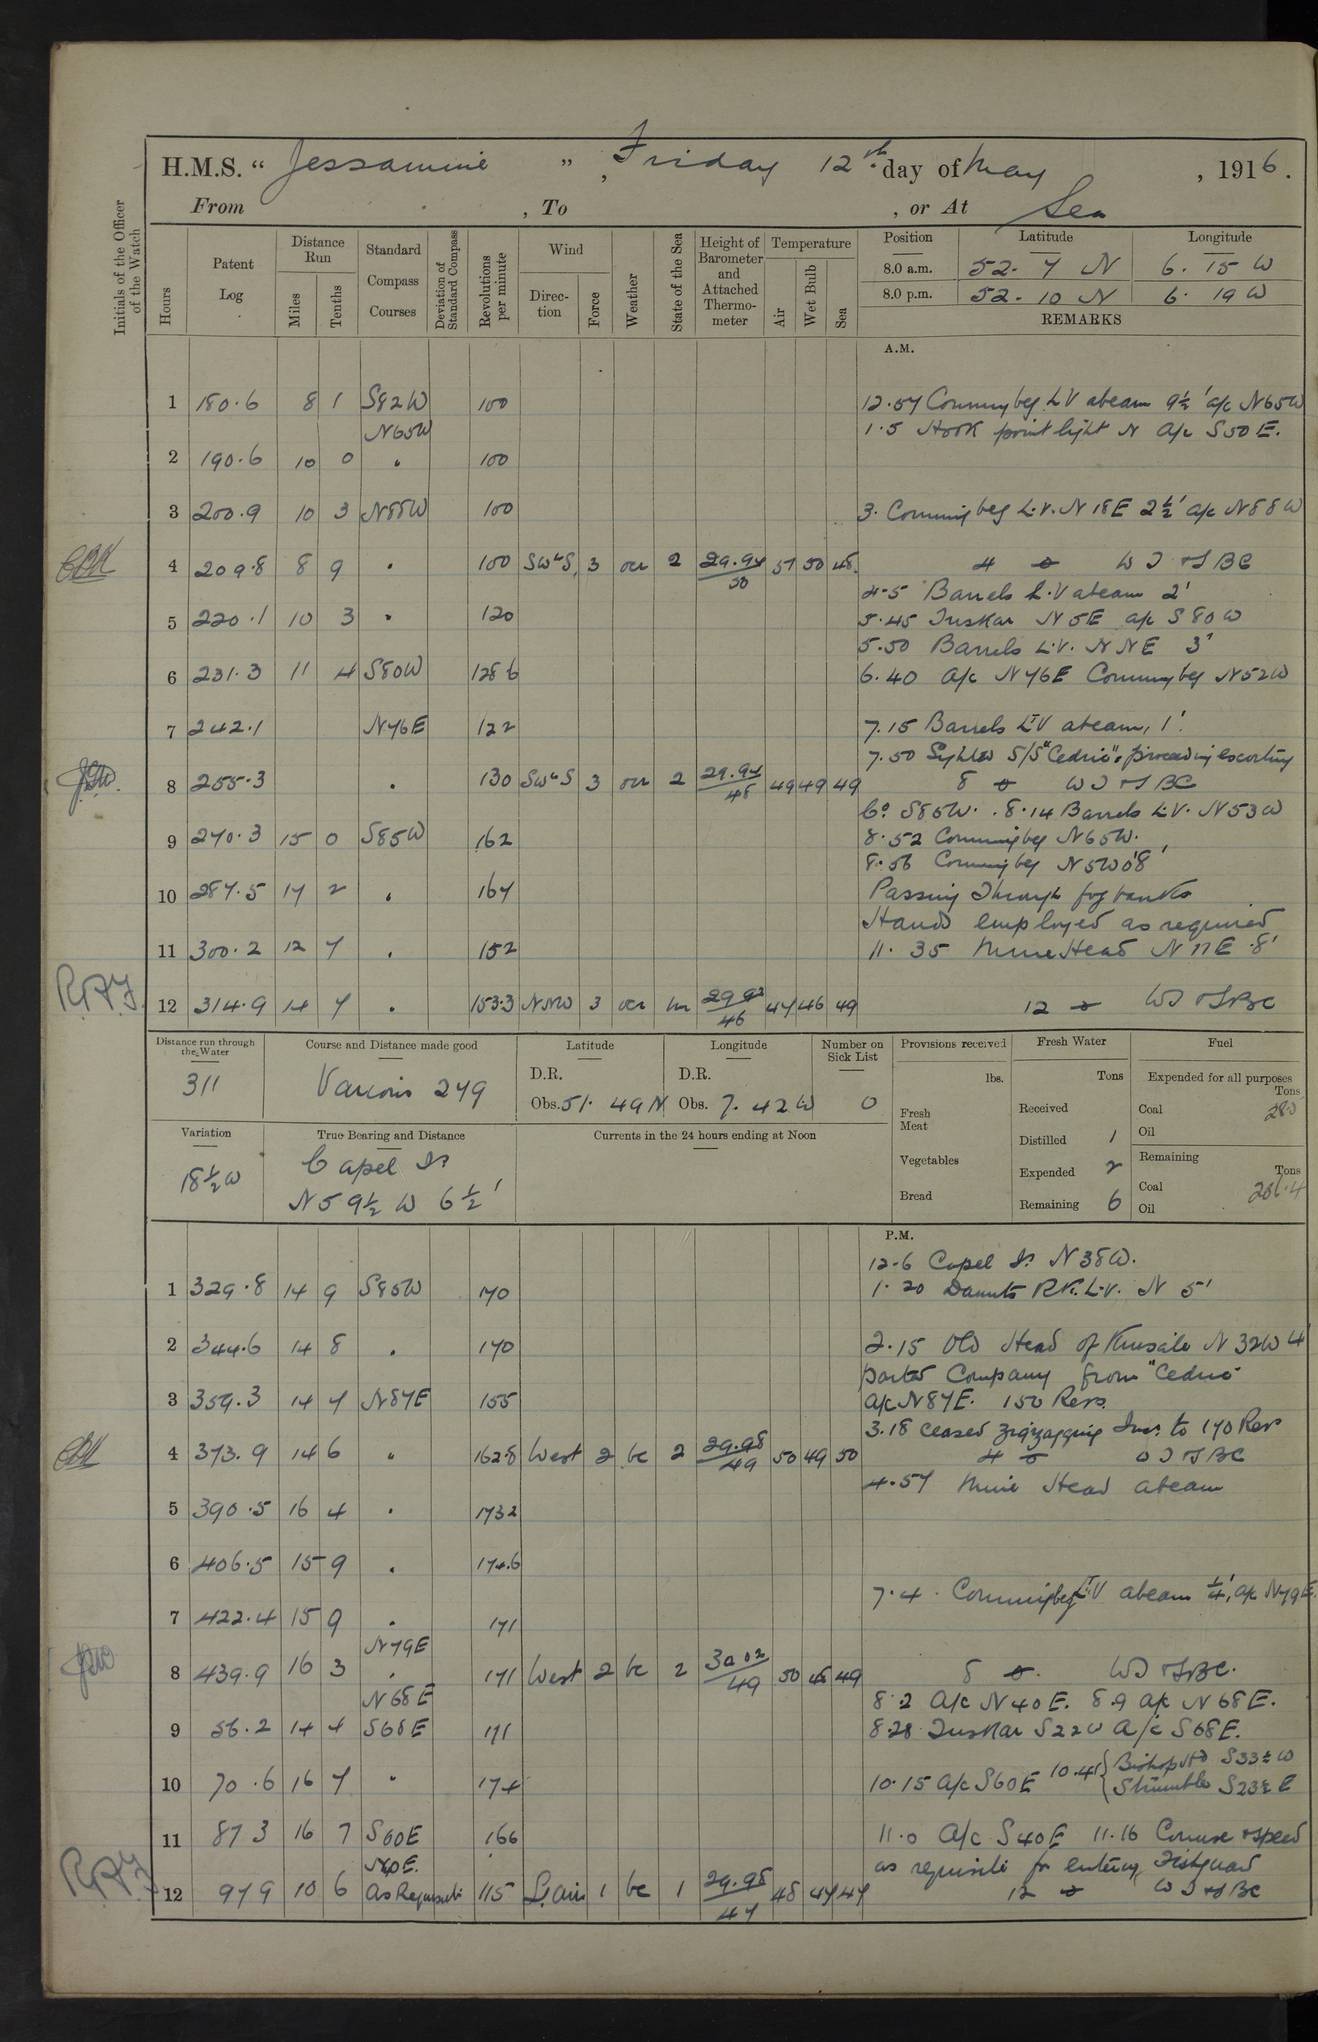 H.M.S. " Jessamine ", Friday 12th day of May, 1916.
From , To , or At Sea
Initials of the Officer of the Watch
Hours
Patent Log
Distance Run
Miles
Tenths
Standard Compass Courses
Deviation of Standard Compass
Revolutions per minute
Wind
Direc-tion
Force
Weather
State of the Sea
Height of Barometer and Attached Thermo-meter
Temperature
Air
Wet Bulb
Sea
Position Latitude Longitude
8.0 a.m. 52. 7 N 6. 15 W
8.0 p.m. 52. 10 N 6. 19 W
REMARKS
A.M.
1 180.6 8 1 S82W 100 12.57 Conningbeg L V abeam 9½' a/c N65W
N65W 1.5 Hook point light N a/c S50E.
2 190.6 10 0 " 100
3 200.9 10 3 N88W 100 3. Conningbeg L.V. N18E 2½' a/c N88W
4 209.8 8 9 " 100 SWbS 3 ocr 2 29.94/50 51 50 48 4 WT & SBC
4.5 Barrels L.V abeam 2'
5 220.1 10 3 " 120 5.45 Tuskar N5E a/c S80W
5.50 Barrels L.V. NNE 3'
6 231.3 11 4 S80W 128.6 6.40 A/c N76E Conningbeg N52W
7 242.1 N76E 122 7.15 Barrels LtV abeam, 1'.
7.50 Sighted S/S "Cedric", proceeding escorting
8 255.3 " 130 SWbS 3 ocr 2 29.94/48 49 49 49 8 WT & SBC
Co. S85W. 8.14 Barrels L.V. N53W
9 270.3 15 0 S85W 162 8.52 Conningbeg N65W.
8.56 Conningbeg N5W 0'8
10 287.5 17 2 " 167 Passing through fog banks
Hands employed as required
11 300.2 12 7 " 152 11.35 Mine Head N11E .8'
12 314.9 14 7 " 153.3 NNW 3 ocr 29.92/46 47 46 49 12 WT & SBC
Distance run through the Water
311
Course and Distance made good
Various 279
Latitude
D.R.
Obs. 51. 49 N
Longitude
D.R.
Obs. 7. 42 W
Number on Sick List
0
Provisions received
lbs.
Fresh Meat
Vegetables
Bread
Fresh Water
Tons
Received
Distilled 1
Expended 2
Remaining 6
Fuel
Expended for all purposes
Tons
Coal 28.0
Oil
Remaining
Tons
Coal 206.4
Oil
Variation
18½ W
True Bearing and Distance
Capel Id
N59½ W 6½'
Currents in the 24 hours ending at Noon
P.M.
12.6 Capel Id N38W.
1 329.8 14 9 S85W 170 1.20 Daunts Rk. L.V. N 5'
2 344.6 14 8 " 170 2.15 Old Head of Kinsale N32W 4'
parted Company from "Cedric"
3 359.3 14 7 N87E 155 a/c N87E. 150 Revs.
3.18 Ceased zigzagging Incr. to 170 Revs
4 373.9 14 6 " 162.8 West 2 bc 2 29.98/49 50 49 50 4 SBC
4.57 Mine Head abeam
5 390.5 16 4 " 173.2
6 406.5 15 9 " 174.6
7.4 Conningbeg LtV abeam ¼', a/c N79E
7 422.4 15 9 " 171
N79E
8 439.9 16 3 " 171 West 2 bc 2 30.02/49 50 48 49 8 WT & SBC.
N68E 8.2 A/c N40E. 8.9 a/c N68E.
9 56.2 14 4 S68E 171 8.28 Tuskar S22W A/c S68E.
10 70.6 16 7 " 174 10.15 A/c S60E 10.45 { Bishop Hd S33½W
Strumble S23½E
11 87 3 16 7 S60E 166 11.0 A/c S40E 11.16 Course & speed
S40E. as requisite for entering Fishguard
12 97 9 10 6 as Requisite 115 L. airs 1 bc 1 29.98/47 48 47 47 12 WT & SBC